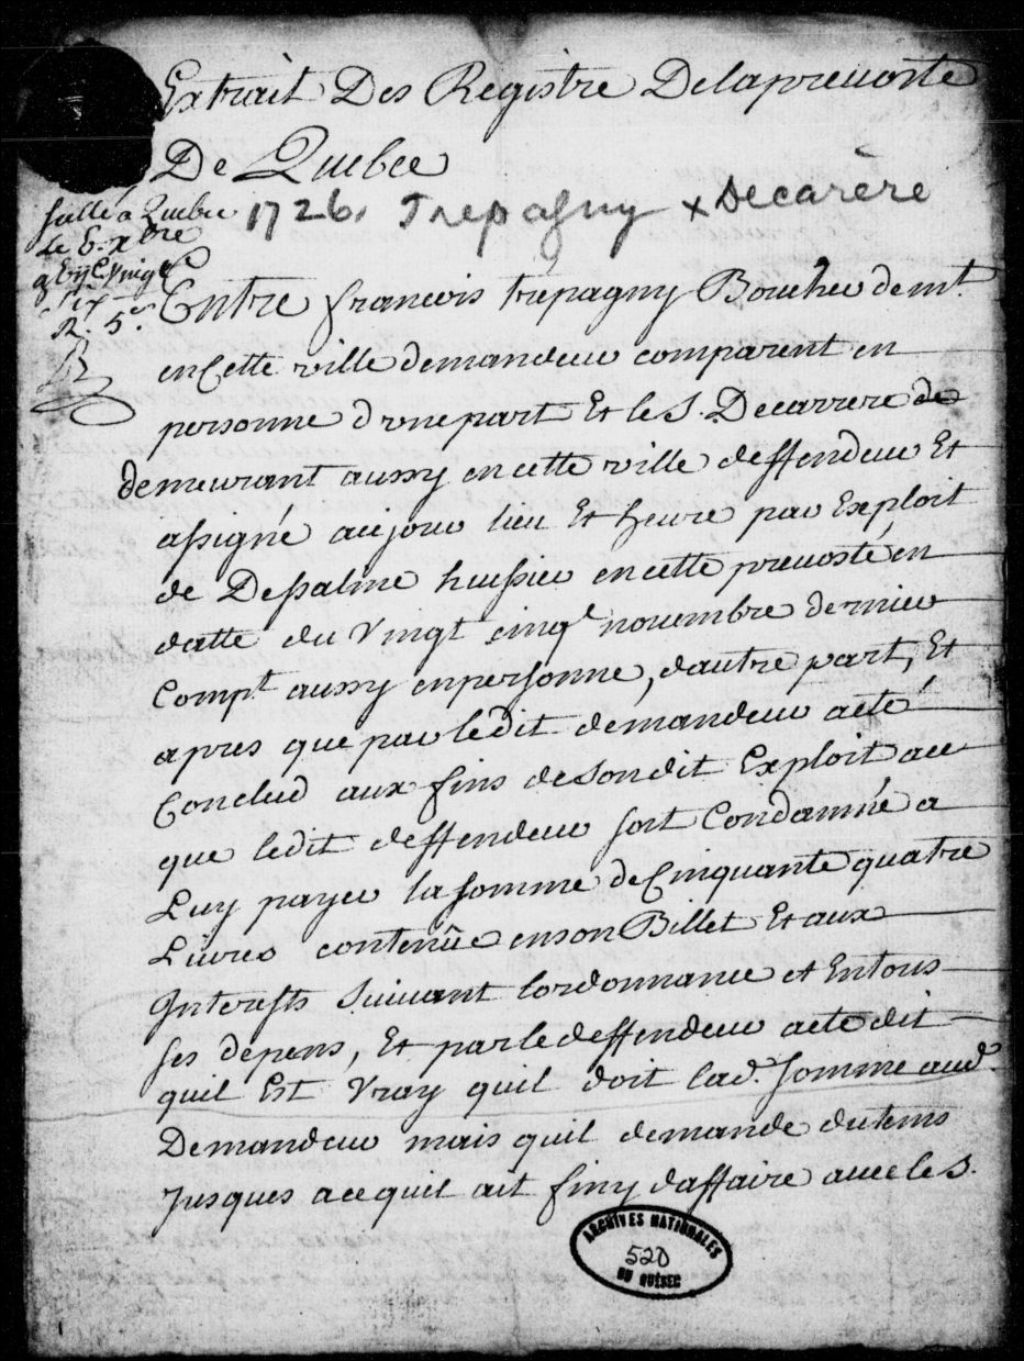 Extrait Des Registre Delapreuosté
De Quebec
1726. Trepagny x Decarère
scellé a Quebec
Le 6. xbre
gbijC Vingt
six
R. 5s.
Entre francois trepagny Boucher demt.
en Cette ville demandeur comparent en
personne d'vne part Et le S. Decarrere de
demeurant aussy en cette ville deffendeur Et
assigné au jour lieu Et heure par Exploit
de Dessaline huissier en cette preuosté en
datte du Vingt cinqe. nouembre dernier
Compt. aussy en personne, dautre part, Et
apres que par ledit demandeur aeté
Conclud aux fins de sondit Exploit ace
que ledit deffendeur soit Condamné a
Luy payer la somme de Cinquante quatre
Liures contenüe en son Billet Et aux
Interests suiuant lordonnance et Entous
ses depens, Et par le deffendeur aeté dit
quil Est Vray quil doit lad. somme aud.
Demandeur mais quil demande du tems
Jusques acequil ait finy daffaire auec le S.
ARCHIVES NATIONALES
520
DU QUÉBEC